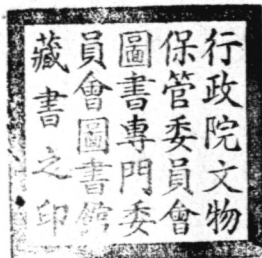 行政院文物
保管委員會
圖書專門委
員會圖書館
藏書之印